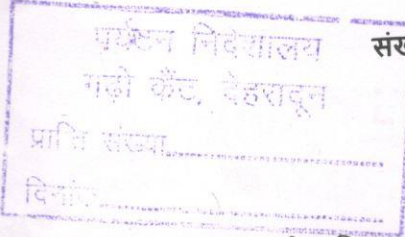 पर्यटन निदेशालय
गढ़ी कैंट, देहरादून
प्राप्ति संख्या
दिनांक